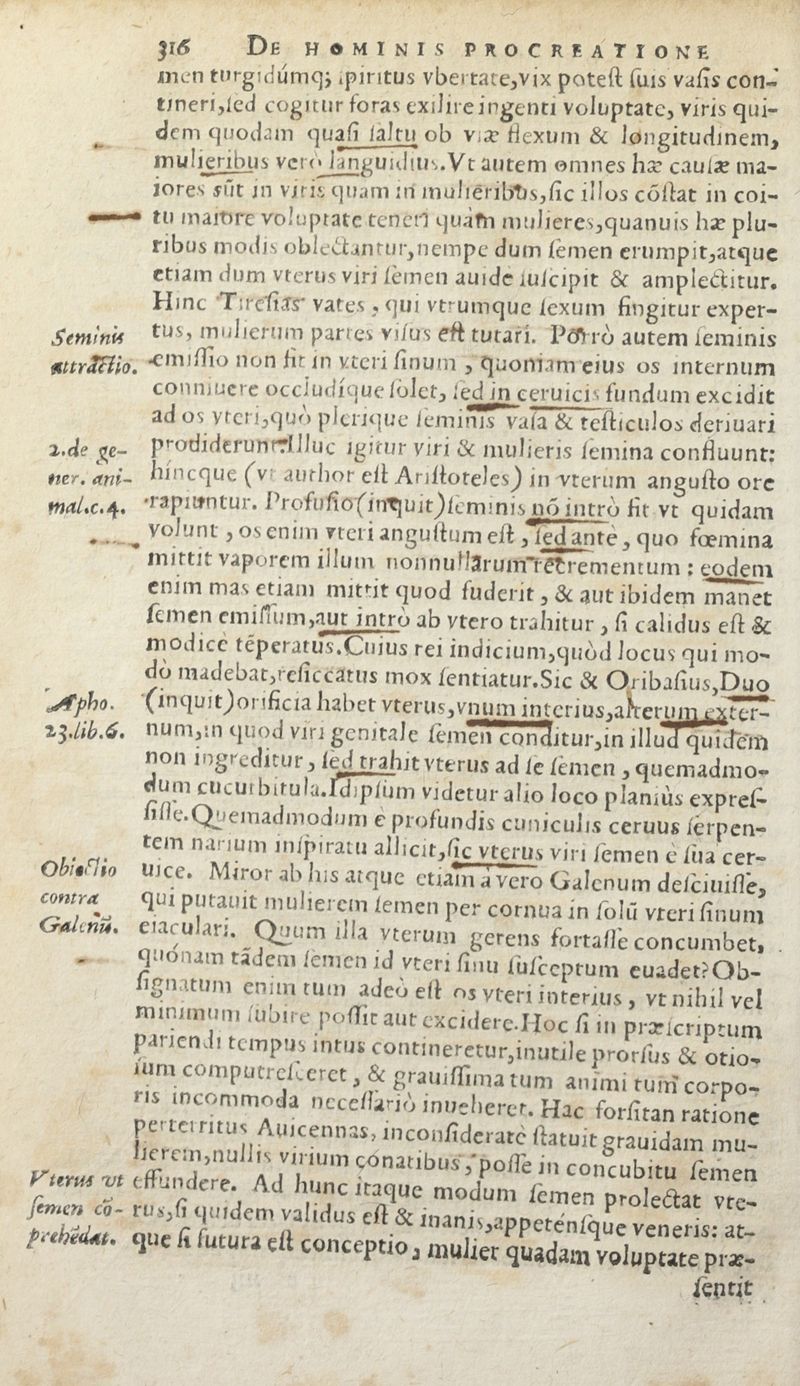 316 DE HOMINIS PROCREATIONE
men turgidúmq; spiritus vbertate,vix poteſt ſuis vaſis con-
tineri,ſed cogitur foras exilire ingenti voluptate, viris qui-
dem quodam quaſi ſaltu ob viæ flexum & longitudinem,
mulieribus vero languidius.Vt autem omnes hæ cauſæ ma-
iores sũt in viris quam in mulieribus,ſic illos cõſtat in coi-
tu maiore voluptate teneri quàm mulieres,quanuis hæ plu-
ribus modis oblectantur,nempe dum ſemen erumpit,atque
etiam dum vterus viri ſemen auide ſuſcipit & amplectitur.
Hinc Tireſias vates , qui vtrumque ſexum fingitur exper-
Seminis tus, mulierum partes viſus eſt tutari. Porrò autem ſeminis
attractio. emiſſio non fit in vteri ſinum , quoniam eius os internum
conniuere occludíque ſolet, ſed in ceruicis fundum excidit
ad os vteri,quò plerique ſeminis vaſa & teſticulos deriuari
2.de ge- prodiderunt.Illuc igitur viri & mulieris ſemina confluunt:
ner. ani- hincque (vt author eſt Ariſtoteles) in vterum anguſto ore
mal.c.4. rapiuntur. Profuſio(inquit)ſeminis nõ intrò fit vt quidam
volunt , os enim vteri anguſtum eſt , ſed antè, quo fœmina
mittit vaporem illum nonnullarum retrementum : eodem
enim mas etiam mittit quod fuderit , & aut ibidem manet
ſemen emiſſum,aut intrò ab vtero trahitur , ſi calidus eſt &
modice tẽperatus.Cuius rei indicium,quòd locus qui mo-
do madebat,reſiccatus mox ſentiatur.Sic & Oribaſius,Duo
Apho. (inquit)orificia habet vterus,vnum interius,alterum exter-
23.lib.6. num,in quod viri genitale ſemen conditur,in illud quidem
non ingreditur, ſed trahit vterus ad ſe ſemen , quemadmo-
dum cucurbitula.Idipſum videtur alio loco planiùs expreſ-
ſiſſe.Quemadmodum è profundis cuniculis ceruus ſerpen-
tem narium inſpiratu allicit,ſic vterus viri ſemen è ſua cer-
Obiectio uice. Miror ab his atque etiam à vero Galenum deſciuiſſe,
contra qui putauit mulierem ſemen per cornua in ſolũ vteri ſinum
Galenũ. eiaculari. Quum illa vterum gerens fortaſſe concumbet,
quónam tãdem ſemen id vteri ſinu ſuſceptum euadet?Ob-
ſignatum enim tum adeò eſt os vteri interius , vt nihil vel
minimum ſubire poſſit aut excidere.Hoc ſi in præſcriptum
pariendi tempus intus contineretur,inutile prorſus & otio-
ſum computreſceret , & grauiſſima tum animi tum corpo-
ris incommoda neceſſariò inueheret. Hac forſitan ratione
perterritus Auicennas, inconſideratè ſtatuit grauidam mu-
lierem,nullis virium conatibus , poſſe in concubitu ſemen
Vterus vt effundere. Ad hunc itaque modum ſemen prolectat vte-
ſemen cõ- rus,ſi quidem validus eſt & inanis,appeténſque veneris: at-
prehẽdat. que ſi futura eſt conceptio, mulier quadam voluptate præ-
ſentit